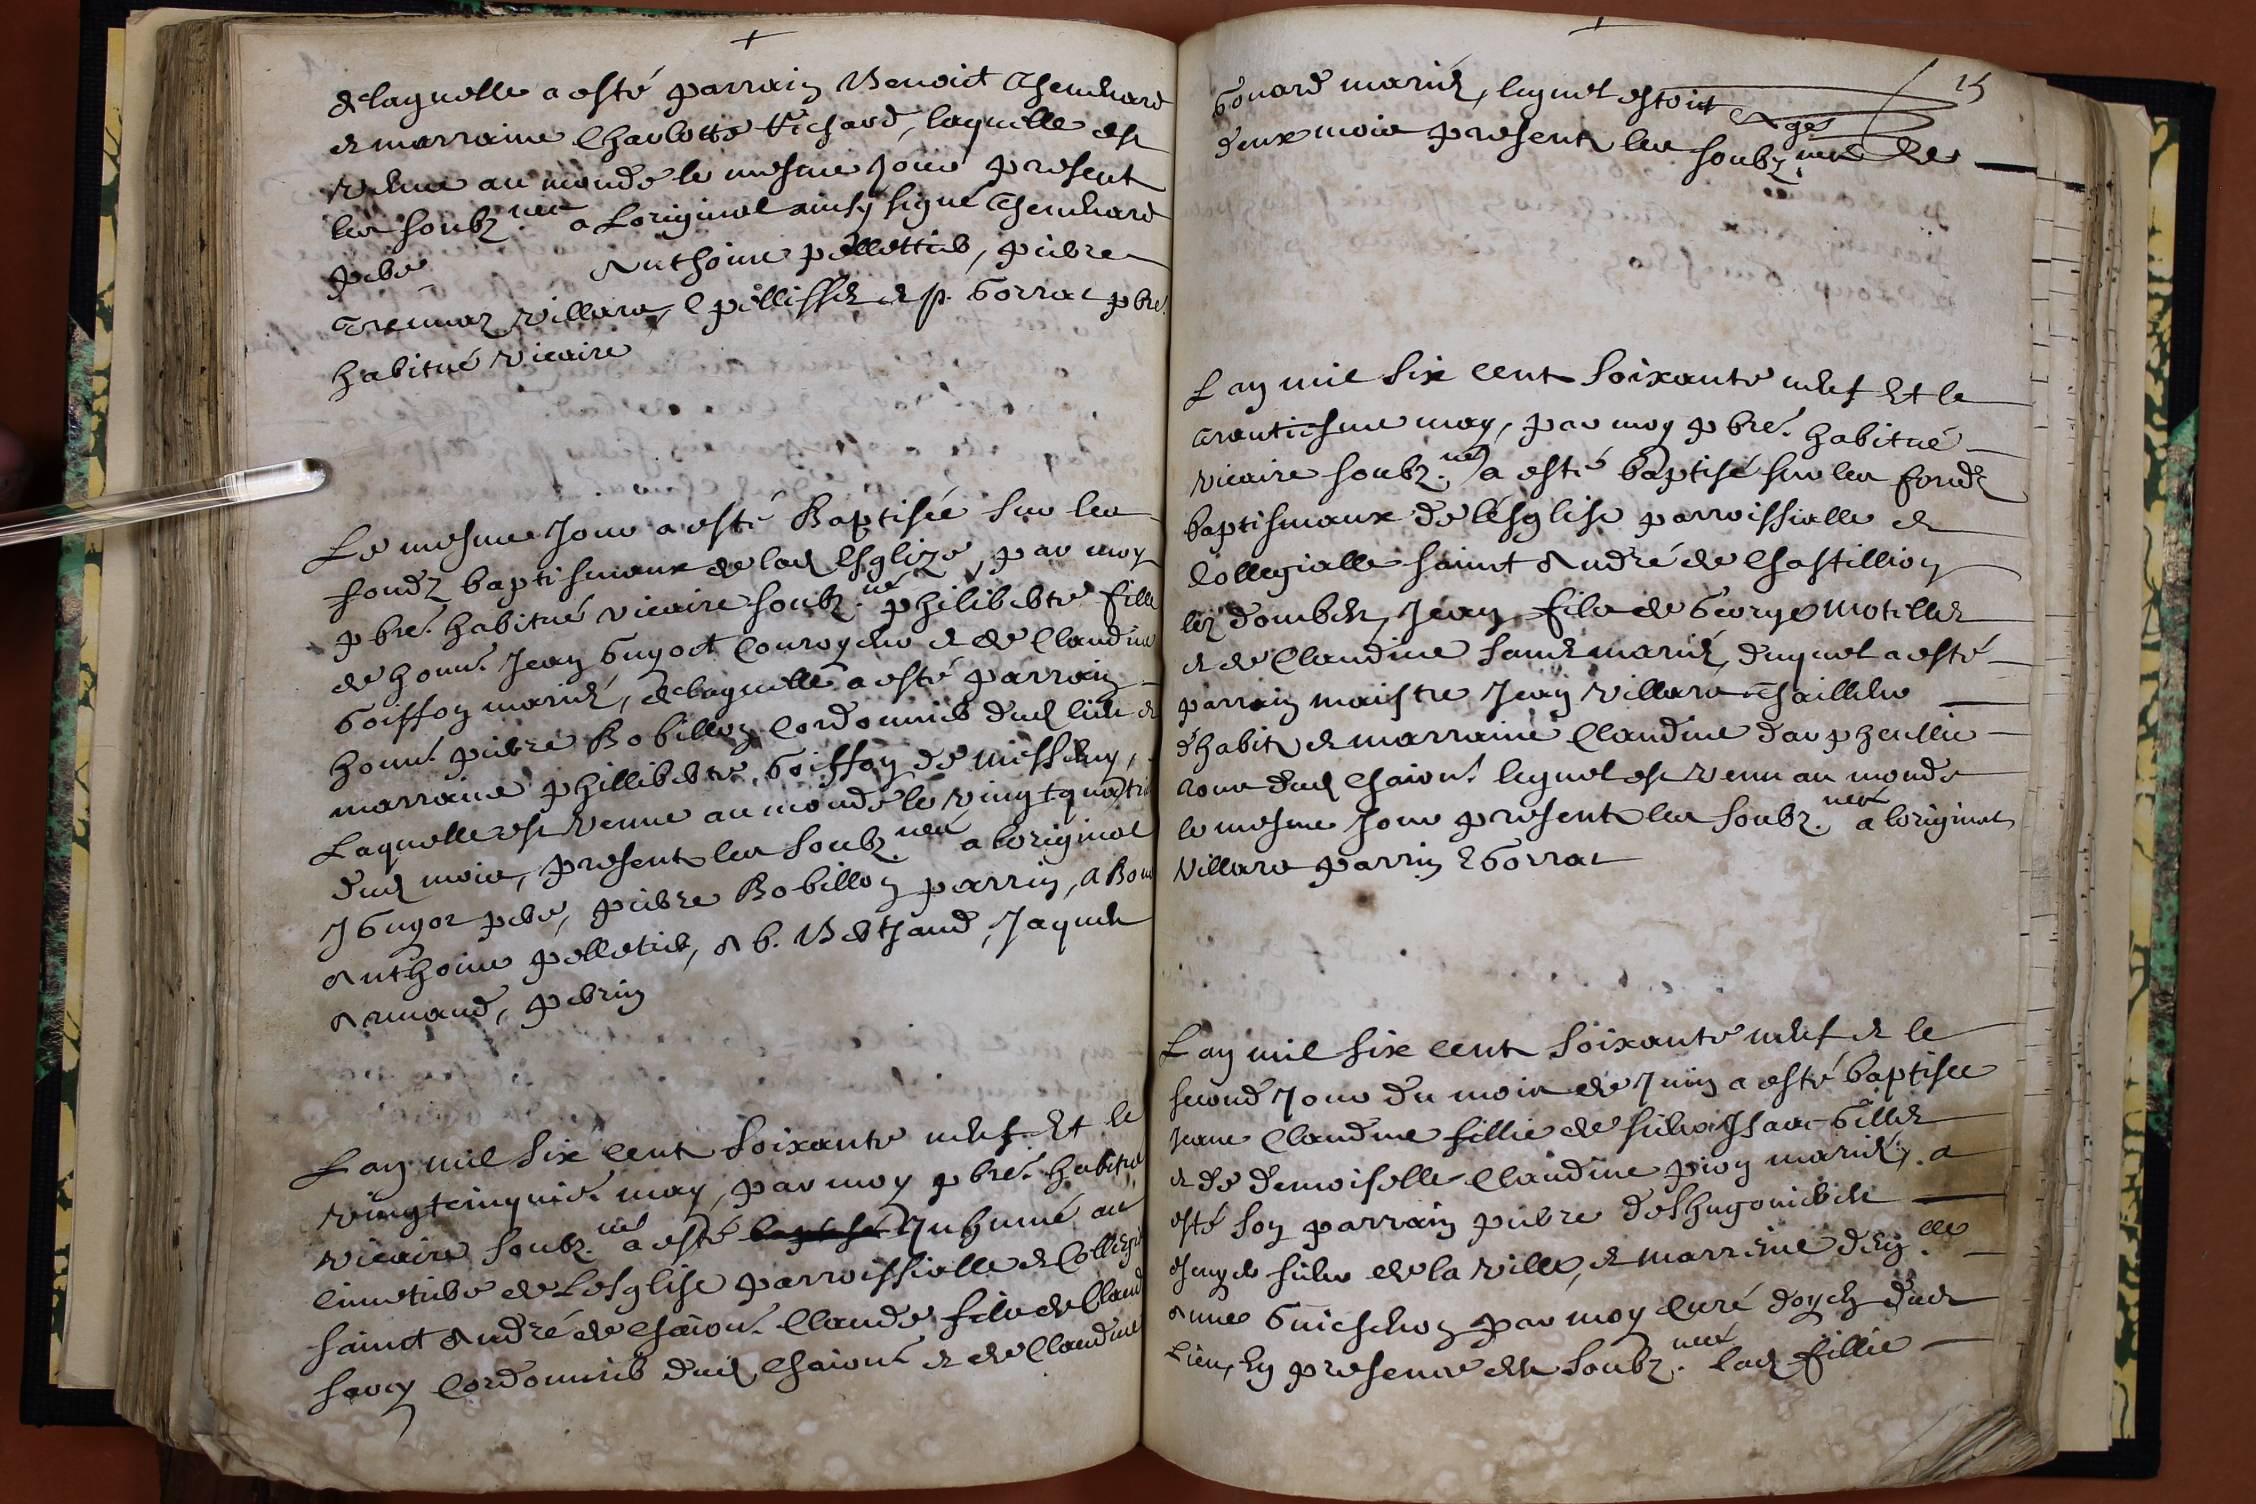 de laquelle a esté parrain Benoict Chenuard
et marraine Charlotte Richard, laquelle est
venue au monde le mesme jour present
les soubz.nez a Loriginal ainsy signé Chenuard
pere Anthoine pellettier, pierre
Villars, C pellissier et p. Gorrat pbre.
habitué vicaire
Le mesme Jour a esté Baptisée sur les
fondz baptismaux de lad Esglize, par moy
pbre. habitué vicaire soubz.né philiberte fille
de honn. Jean Guyot Couroyeur et de Claudine
Goiffon mariés, de laquelle a esté parrain
honn. pierre Bobillon Cordonnier dud lieu et
marraine philliberte Goiffon de
Laquelle est venue au monde le vingtquatrie
dud mois, present les soubz.nez a loriginal
J Guyot pere, pierre Bobillon parrin,
Anthoine pelletier, Berthaud, Jaques
Armand, perrin
Lan mil six cent soixante neuf Et le
vingtcinquie. may, par moy pbre. habitué
vicaire soubz.né a esté baptisé Inhumé au
cimetiere de Lesglise parroissialle et Collegia
sainct André de Chaion. Claude fils de Claude
Cordonnier dud Chaion. et de Claudine
15
Gouard mariés, lequel estoit Agé de
deux mois present les soubz.nez
Lan mil six cent soixante neuf Et le
trantiesme may, par moy pbre. habitué
vicaire soubz.né a esté baptisé sur les fondz
baptismaux de lésglise parroissialle et
Collegialle sainct André de Chastillion
lez dombes, Jean fils de George Motillet
et de Claudine mariés, duquel a esté
parrain maistre Jean Villars Tailleur
d'habit et marraine Claudine
dud Chaion. lequel est venu au monde
le mesme Jour present les soubz.nez a loriginal
Villars parrin Gorrat
Lan mil six cent soixante neuf et le
second Jour du mois de Juin a esté baptisée
Jeane Claudine fillie de sieur Isaac Gillet
et de demoiselle Claudine pion mariés, a
esté son parrain pierre
de la ville, et marreine
Anne Guichenon par moy Curé doyen dud
Lieu, En presence des soubz.nez lad fillie